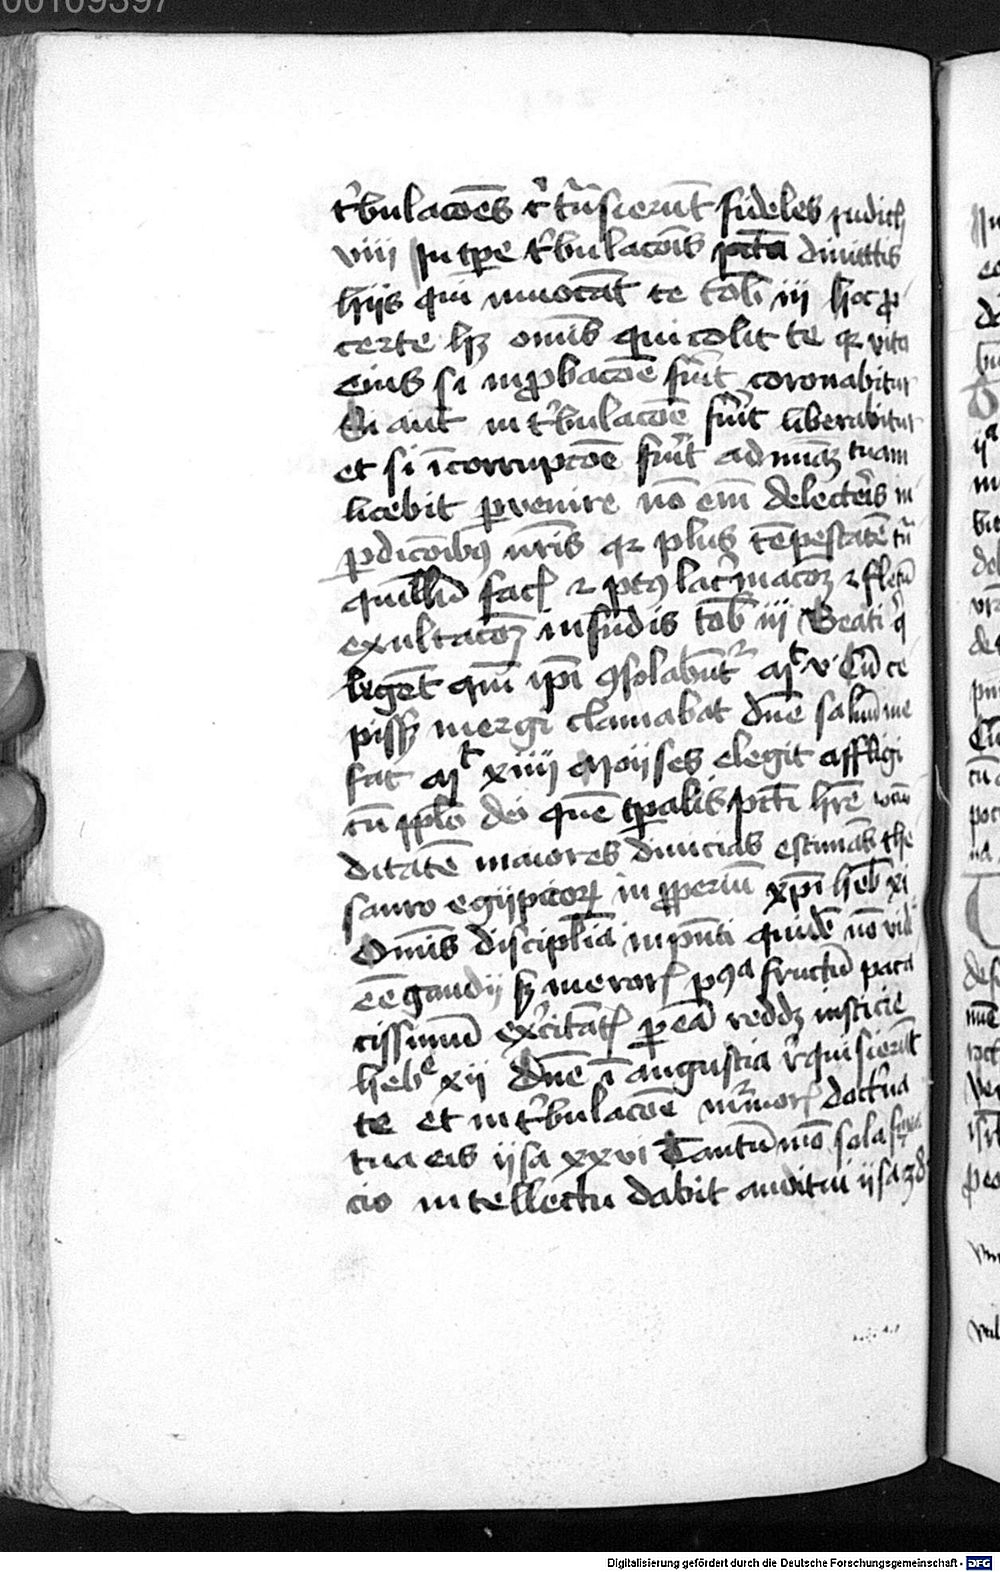 00109397
t'bulacōes t' trāsierūt fideles judich
viii In tpe t'bulacōis pctā dimittis
hiis qui inuocāt te tob iii hoc p
certe hz omīs qui colit te qr vita
eius si in pbacōe fuīt coronabitur
Si aut in t'bulacōe fuīt liberabitur
et si ī corrupcōe fuīt ad miāz tuam
licebit pvenire nō em delecteris in
pdicōibus nr̄is qr plus tēpestatē tū
quillū facis et pt9 lacrimacōz et fletū
exultacōz infūdis tob iii Beati q
lugēt qm ipi 9solabūt' mt v Cū ce
pisset mergi clamabat dne saluū me
fac mt xiiii Moijses elegit affligi
cū pplo dei quē tpalis pcti hr̄e iocū
ditatē maiores diuicias estimās the
sauro egijpcior in pperiū xpi heb xi
Omīs disciplīa in pnti quidē nō vid
eē gaudij sz meroris p9ea fructū paca
tissimū exercitatis p eā reddz iusticie
heb xii Dne ī augustia requisierūt
te et in t'bulacōe murmoris doctrīa
tua eis ijsa xxvi Tantūmō sola
cio intellectu dabit auditui ijsa 28
Digitalisierung gefördert durch die Deutsche Forschungsgemeinschaft - DFG